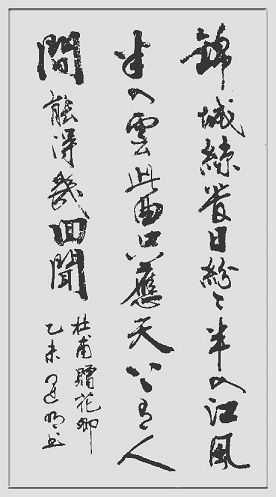 錦城絲管日紛〻半入江風
半入雲此曲只應天上有人
間能得幾回聞
杜甫贈花卿
乙未 书